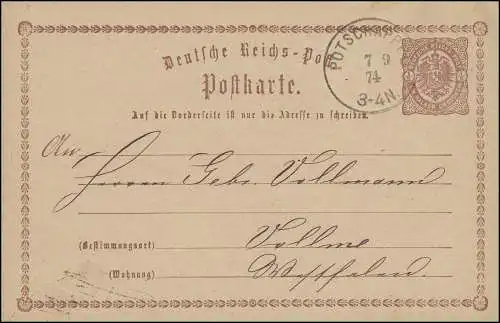 Deutsche Reichs-Po
Postkarte.
POTSCHAPP
7 9
74
3-4N.
Auf die Vorderseite ist nur die Adresse zu schreiben.
An
Herren Gebr. Vollmann
(Bestimmungsort) Vollme
(Wohnung) Westfalen.